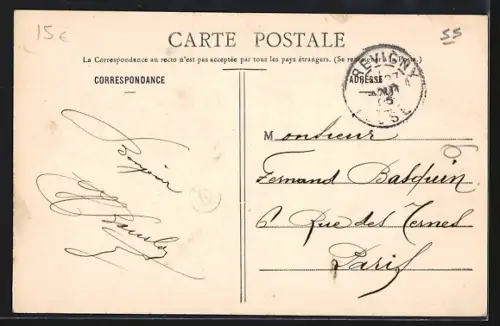 15 €
55
CARTE POSTALE
La Correspondance au recto n'est pas acceptée par tous les pays étrangers. (Se renseigner à la Poste.)
CORRESPONDANCE
ADRESSE
REVIGNY
MEUSE
Bonjour
Monsieur
Fernand Basquin
6 Rue des Ternes
Paris